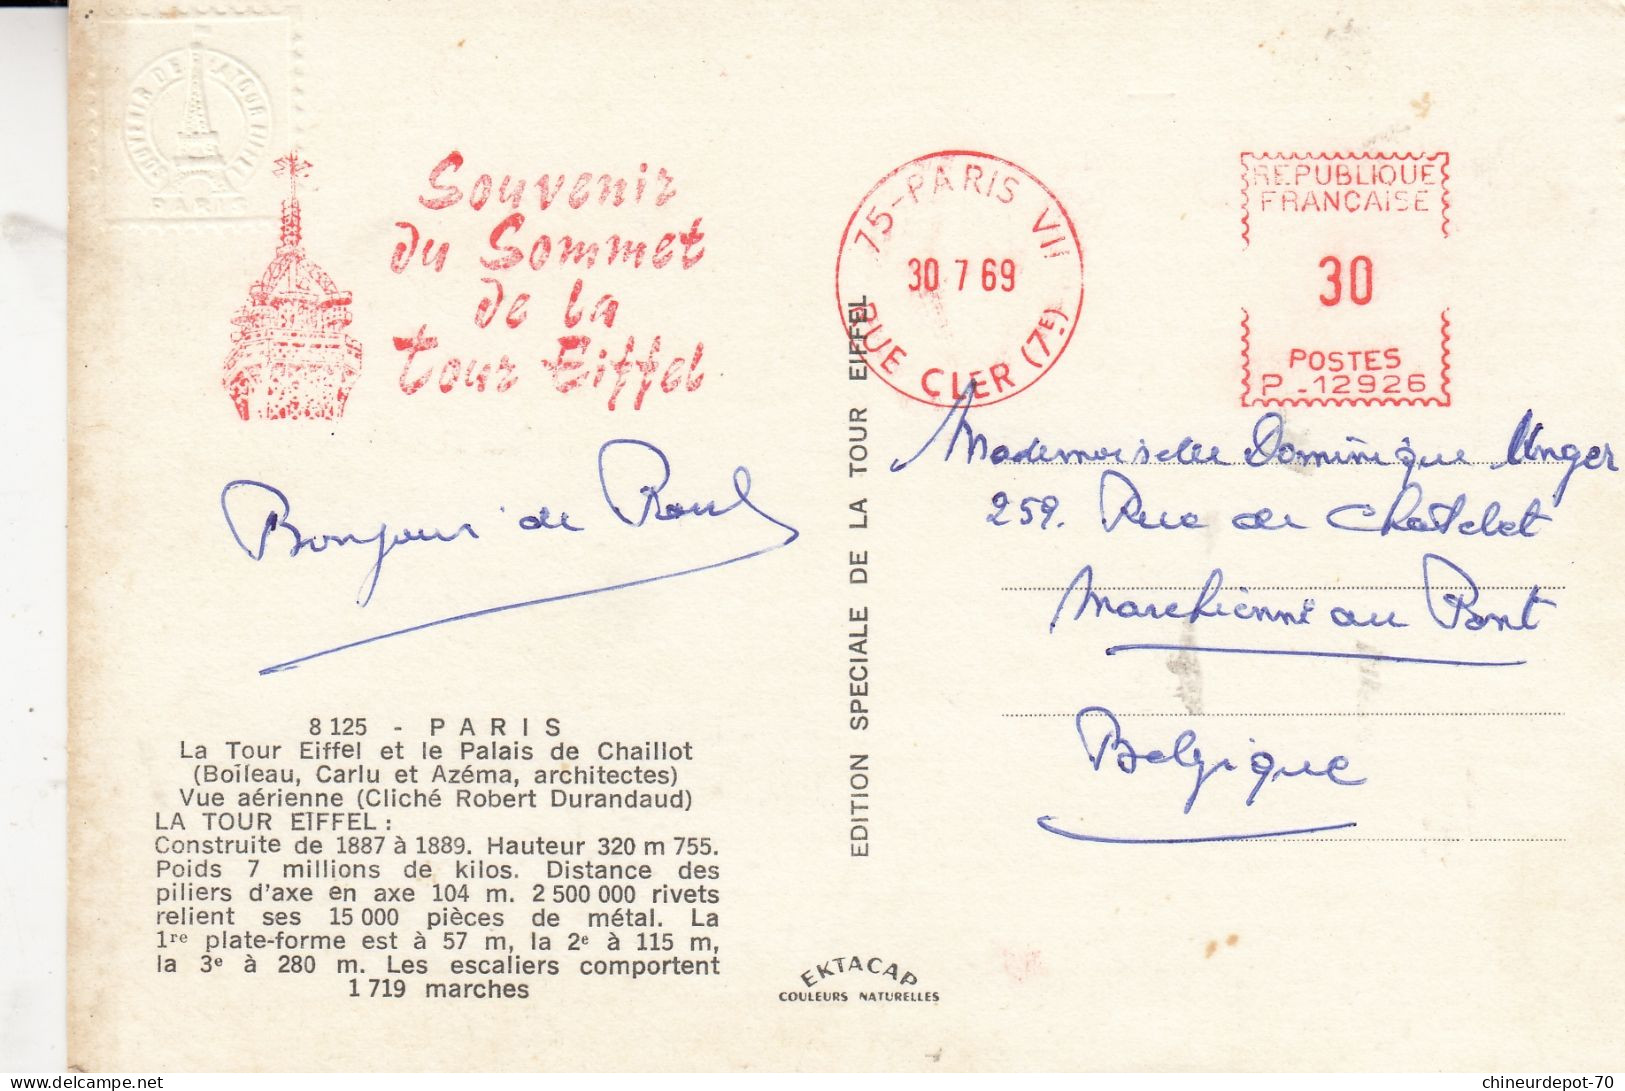 SOUVENIR DE LA TOUR EIFFEL
PARIS
Souvenir
du Sommet
de la
tour Eiffel
75-PARIS VII
30 7 69
RUE CLER (7E)
REPUBLIQUE
FRANCAISE
30
POSTES
P_12926
Bonjour de Raoul
8 125 - PARIS
La Tour Eiffel et le Palais de Chaillot
(Boileau, Carlu et Azéma, architectes)
Vue aérienne (Cliché Robert Durandaud)
LA TOUR EIFFEL :
Construite de 1887 à 1889. Hauteur 320 m 755.
Poids 7 millions de kilos. Distance des
piliers d'axe en axe 104 m. 2 500 000 rivets
relient ses 15 000 pièces de métal. La
1re plate-forme est à 57 m, la 2e à 115 m,
la 3e à 280 m. Les escaliers comportent
1 719 marches
EDITION SPECIALE DE LA TOUR EIFFEL
EKTACAP
COULEURS NATURELLES
Mademoiselle Dominique Unger
259. Rue de Chatelet
Marchienne au Pont
Belgique
chineurdepot-70